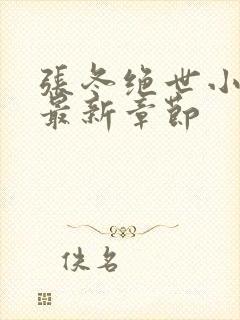 張冬绝世小
最新章節
佚名